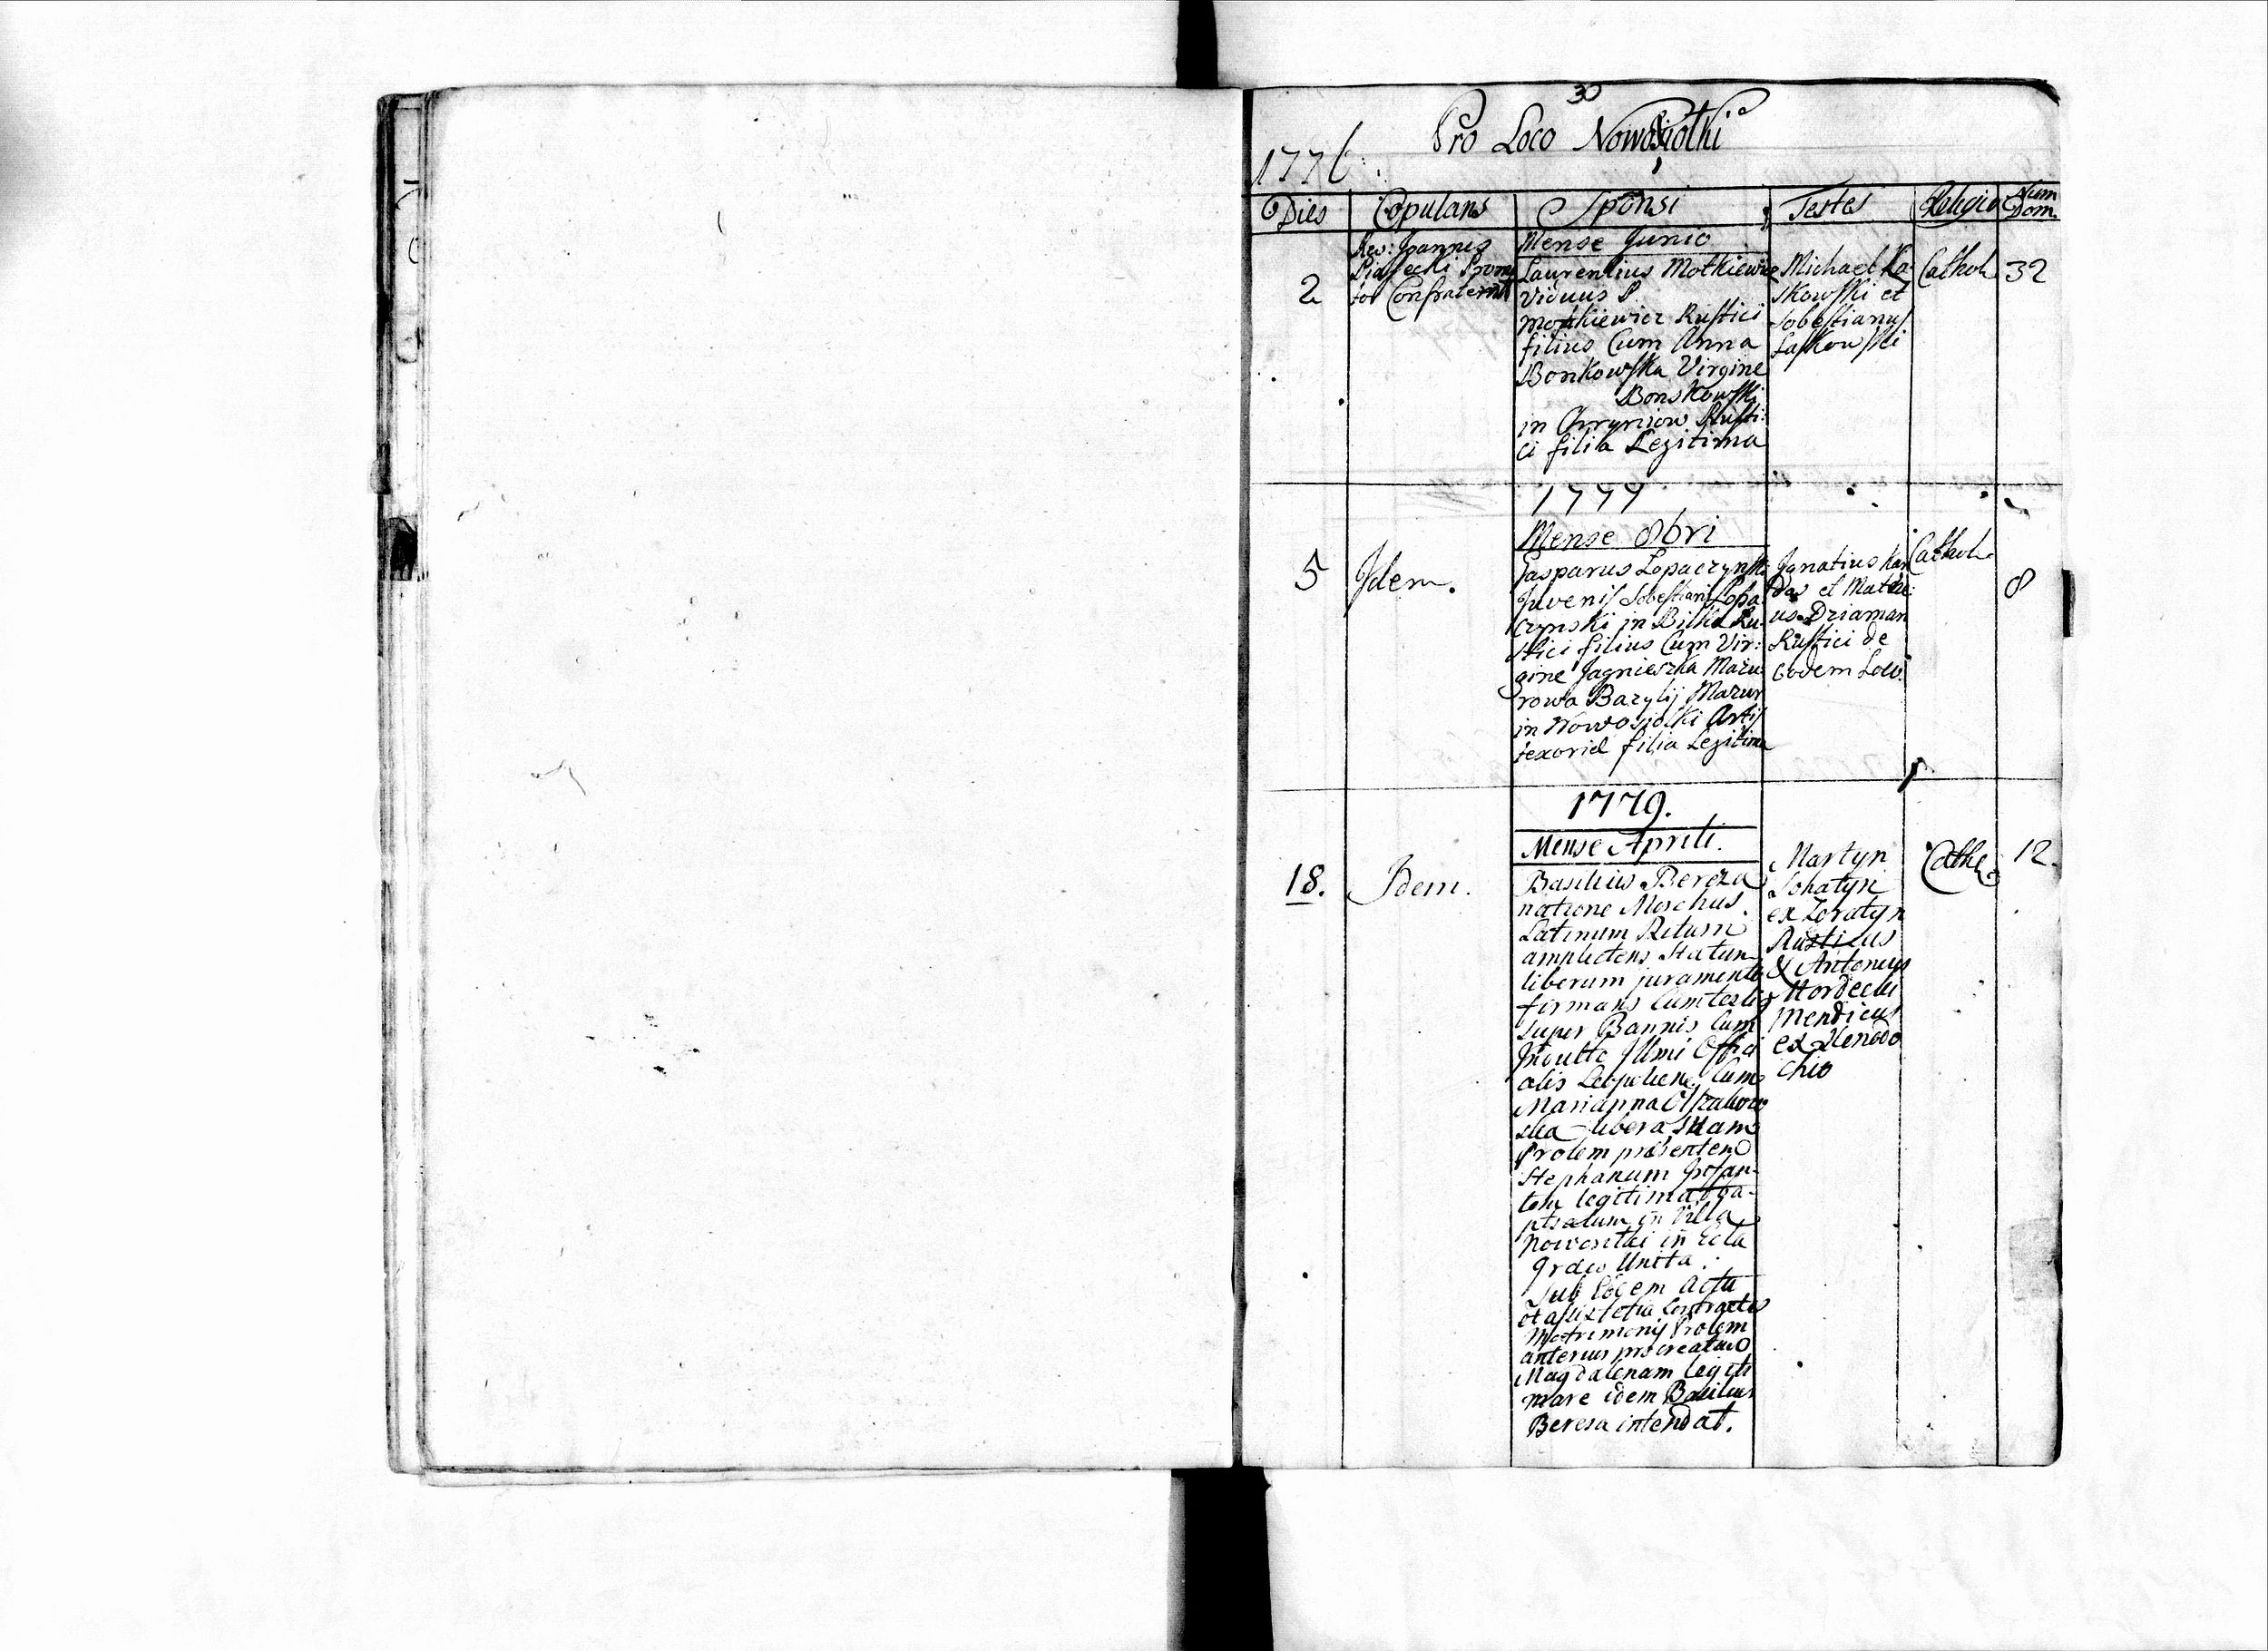 30
Pro Loco Nowosiołki
1776.
Dies Copulans Sponsi Testes Religio Num Dom.
Mense Junio
2
Rev: Joannes
Piasecki Promo
tor Confraternit
Laurentius Motkiewicz
Viduus P.
Motkiewicz Rustici
filius Cum Anna
Bonkowska Virgine
Bonskowski
in Rusti:
ci filia Legitima
Michael La
skowski et
Sobestianus
Laskowski
Cathol
32
1777
Mense 8bri
5
Jdem.
Gasparus Lopaczynski
Juvenis Sobestiani Lopa
czynski in Bilka Ru
stici filius Cum Vir:
gine Jagnieszka Mazu
rowa Bazylij Mazur
in Nowosiolki Artis
texoriæ filia Legitima
Ignatius Kar
das et Mathe:
us Driaman
Rustici de
eodem Loco.
Cathol
8
1779.
Mense Aprili.
18.
Idem.
Basilius Bereza
natione Moschus.
Latinum Ritum
amplectens Statum
liberum juramento
firmans Cum testib
super Bannis Cum
Indulto Illmi Offici
alis Leopoliens Cum
Marianna
ska libera suam
Prolem præsentem
Stephanum Infan-
tem legitimat ba-
ptisatum in Villa
Nowosilki in Ecla
Græco Unita.
Sub eodem actu
Contractus
Matrimonij Prolem
anterius procreatam
Magdalenam legiti
mare idem Basilius
Bereza intendat.
Martyn
Sohatyn
ex Zoratyn
Rusticus
& Antonius
Mordecki
Mendicus
ex Xenodo
chio
Cathol
12.